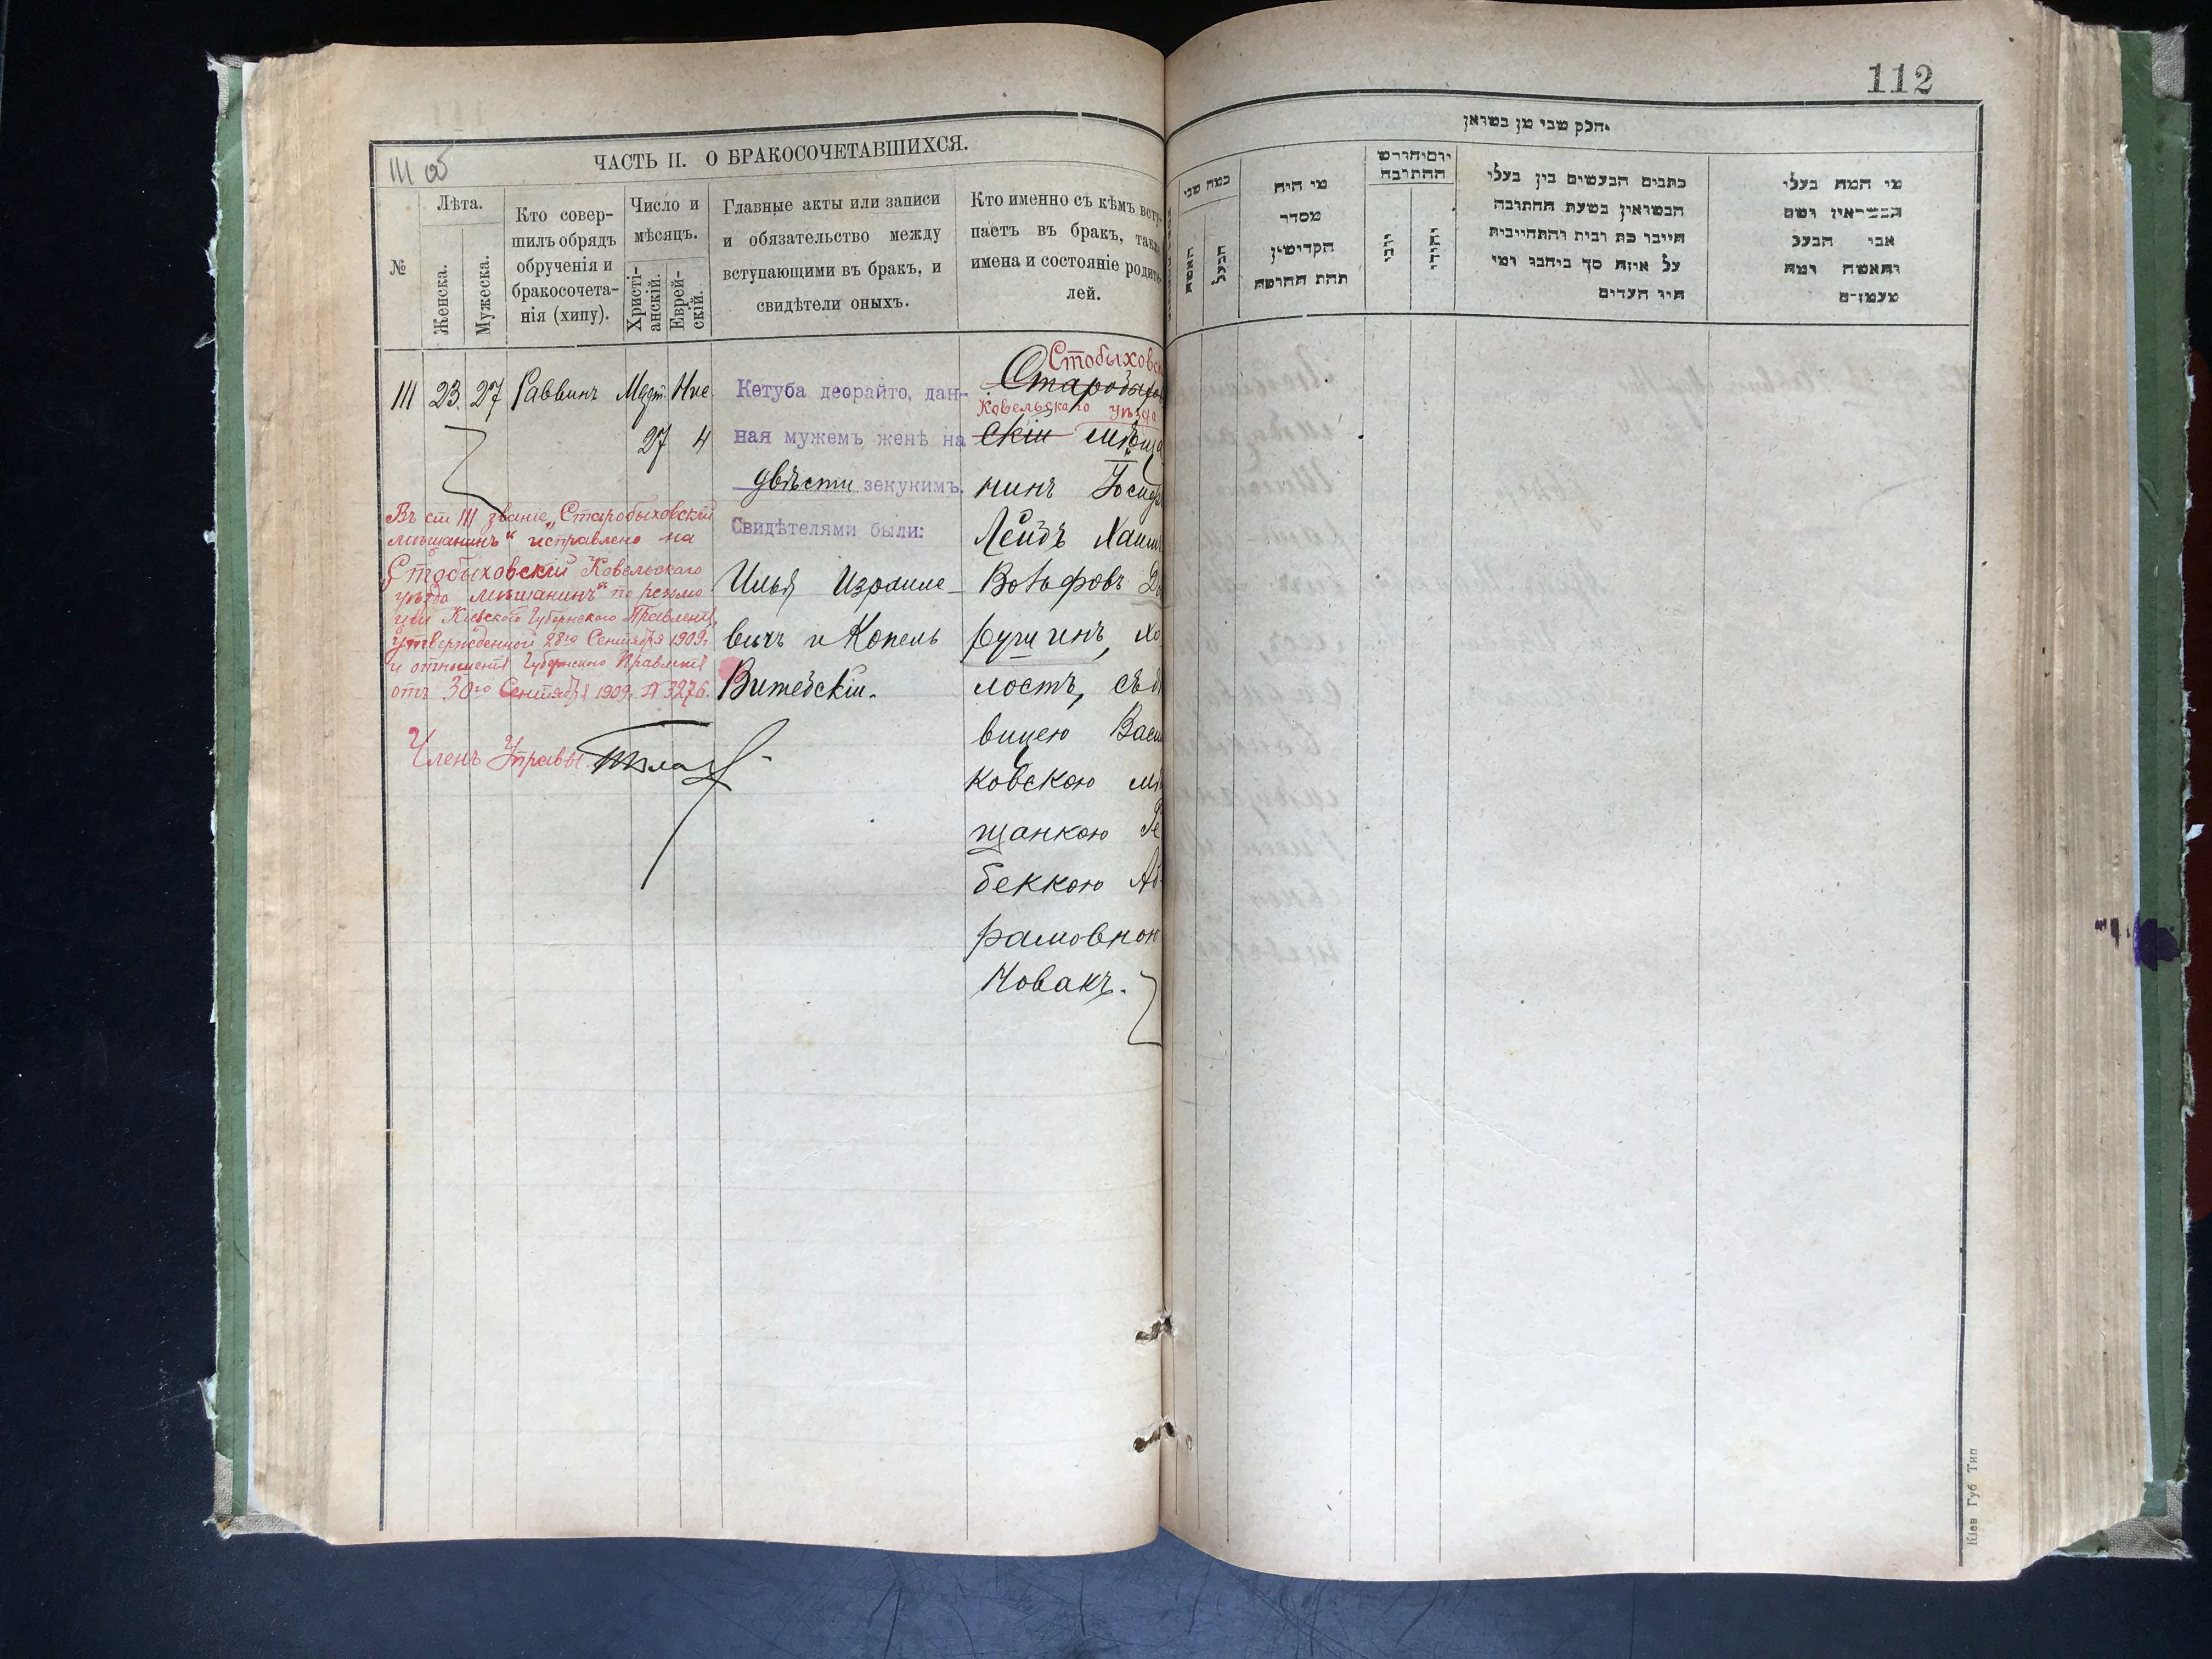 112
111 об
ЧАСТЬ II. О БРАКОСОЧЕТАВШИХСЯ.
№
Лѣта.
Женска.
Мужеска.
Кто совер-
шилъ обрядъ
обрученія и
бракосочета-
нія (хипу).
Число и
мѣсяцъ.
Христі-
анскій.
Еврей-
скій.
Главные акты или записи
и обязательство между
вступающими въ бракъ, и
свидѣтели оныхъ.
Кто именно съ кѣмъ всту-
паетъ въ бракъ, также
имена и состояніе родите-
лей.
111 23. 27 Раввинъ Март. Нис.
27 4
Кетуба деорайто, дан-
ная мужемъ женѣ на
двѣсти зекукимъ.
Свидѣтелями были:
Илья Израиле-
вичъ и Копель
Витебскій.
Стобыховск
Старобыхов
Ковельскаго уѣзда
скій мѣща
нинъ Іосиф
Лейбъ Хаим
Вольфовъ
ругинъ, хо
лостъ, съ дѣ
вицею Васи
ковскою мѣ
щанкою Ре
беккою Аб-
рамовною
Новакъ.
Въ ст 111 званіе „Старобыховскій
мѣщанинъ“ исправлено на
„Стобыховскій Ковельскаго
уѣзда мѣщанинъ“ по резолю
ціи Кіевского Губернского Правленія,
утвержденной 28го Сентября 1909г.
и отношенія Губернского Правленія
отъ 30го Сентября 1909г. № 3276.
Членъ Управы
חלק שני מן נשואין
כמה שני
האשה
הבעל
מי היה
מסדר
הקדישין
תחת החופה
יום וחודש
ההתונה
יוני
יהודי
כתבים הנעשים בין בעלי
הנשואין בשעת החתונה
היינו כת ובית והתחייבות
על איזה סך ביחבו ומי
היו העדים
מי המה בעלי
הנשואין ושם
אבי הבעל
והאשה ומה
מעמדם
Кіев Губ Тип